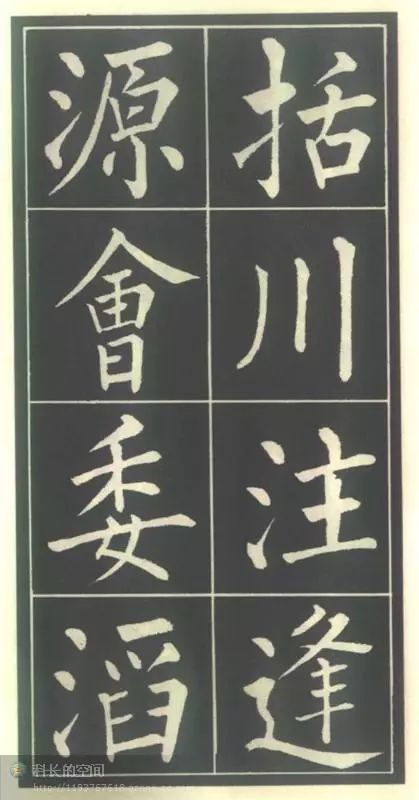 括川注逢
源會委滔
科长的空间